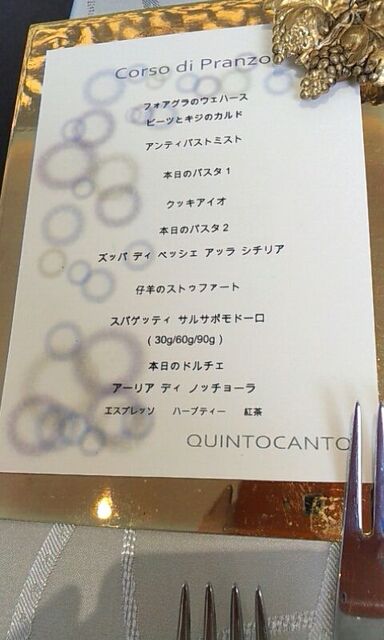 Corso di Pranzo
フォアグラのウェハース
ビーツとキジのカルド
アンティパストミスト
本日のパスタ 1
クッキアイオ
本日のパスタ 2
ズッパ ディ ペッシェ アッラ シチリア
仔羊のストゥファート
スパゲッティ サルサポモドーロ
( 30g/60g/90g )
本日のドルチェ
アーリア ディ ノッチョーラ
エスプレッソ ハーブティー 紅茶
QUINTOCANTO